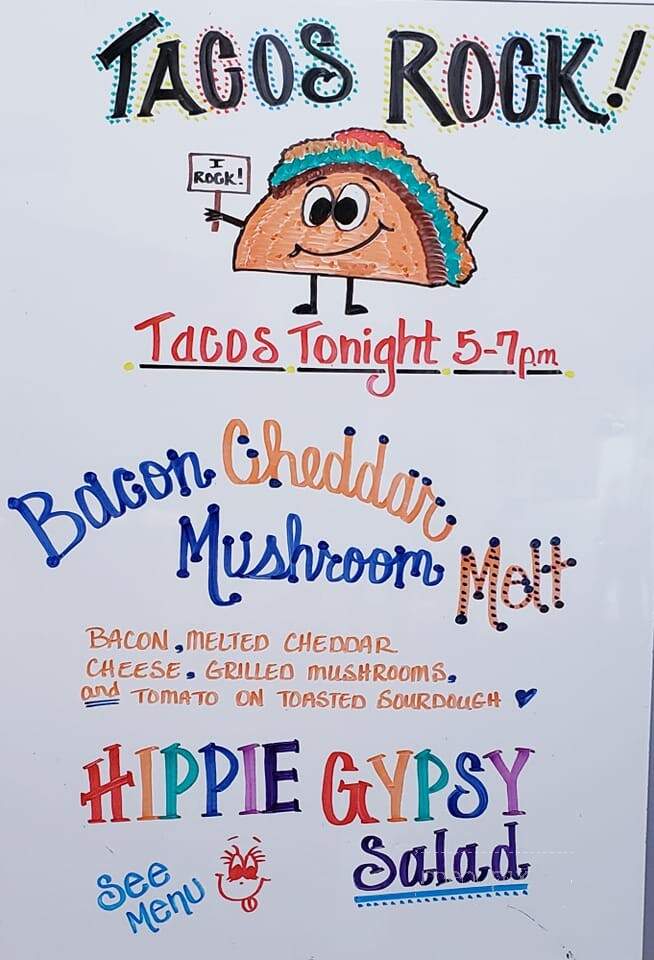 TACOS ROCK!
I
ROCK!
Tacos Tonight 5-7pm
Bacon Cheddar
Mushroom Melt
BACON, MELTED CHEDDAR
CHEESE, GRILLED MUSHROOMS,
and TOMATO ON TOASTED SOURDOUGH
HIPPIE GYPSY
Salad
See
Menu